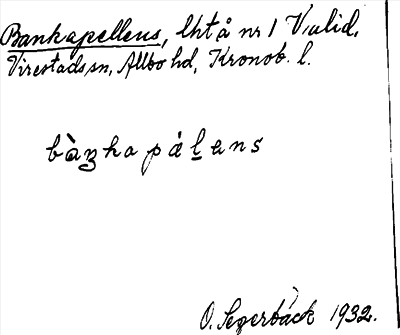 Bankapellens, lht å nr 1 V. ulid,
Virestads sn, Allbo hd, Kronob. l.
bàŋkapáḻens
O. Segerbäck 1932.